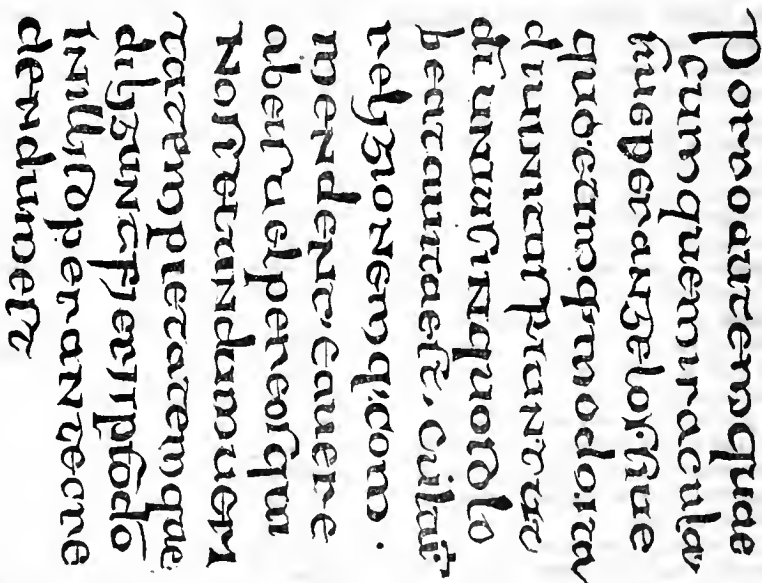 Porroautemquae
cumquemiracula
siueperangelossiue
quocumq;modoita
diuinitusfiantut
dīuniusinquosolo
beatauitaest·cultū
religionemq;com
mendent·eauere
abeisuelpereosqui
nossecundumueri
tatempietatemque
diliguntfieriipsodō
inillisoperantecre
dendumest